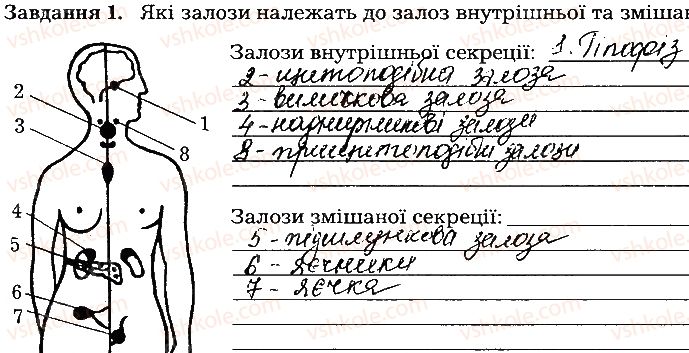 Завдання 1. Які залози належать до залоз внутрішньої та змішан
Залози внутрішньої секреції: 1. Гіпофіз
2 - щитоподібна залоза
3 - вилочкова залоза
4 - наднирникові залози
8 - прищитоподібні залози
Залози змішаної секреції:
5 - підшлункова залоза
6 - яєчники
7 - яєчка
2
3
1
8
4
5
6
7
vshkole.com